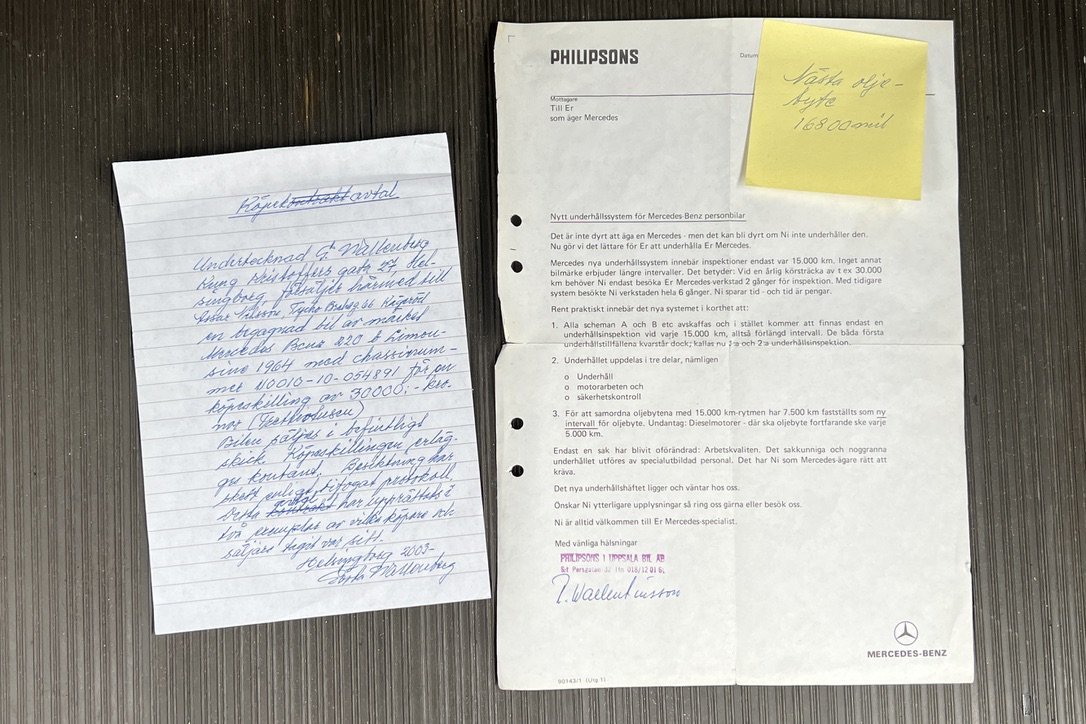 Köpekontrakt avtal
Undertecknad G. Wallenberg
Kung Kristoffers gata 27, Hel-
singborg, försäljer härmed till
Assar Nilsson, Tycho Braheg. 26 Kågeröd
en begagnad bil av märket
Mercedes Benz 220 b Limou-
sine 1964 med chassinum-
mer 110010-10-054891 för en
köpeskilling av 30000:- kro-
nor (Trettiotusen)
Bilen säljes i befintligt
skick. Köpeskillingen erläg-
ges kontant. Besiktning har
skett enligt bifogat protokoll.
Detta kontrakt avtal har upprättats i
två exemplar av vilka köpare och
säljare tagit var sitt.
Helsingborg 2003-
Wallenberg
PHILIPSONS
Datum
Mottagare
Till Er
som äger Mercedes
Nästa olje-
byte
16800 mil
Nytt underhållssystem för Mercedes-Benz personbilar
Det är inte dyrt att äga en Mercedes - men det kan bli dyrt om Ni inte underhåller den.
Nu gör vi det lättare för Er att underhålla Er Mercedes.
Mercedes nya underhållssystem innebär inspektioner endast var 15.000 km. Inget annat
bilmärke erbjuder längre intervaller. Det betyder: Vid en årlig körsträcka av t ex 30.000
km behöver Ni endast besöka Er Mercedes-verkstad 2 gånger för inspektion. Med tidigare
system besökte Ni verkstaden hela 6 gånger. Ni sparar tid - och tid är pengar.
Rent praktiskt innebär det nya systemet i korthet att:
1. Alla scheman A och B etc avskaffas och i stället kommer att finnas endast en
underhållsinspektion vid varje 15.000 km, alltså förlängd intervall. De båda första
underhållstillfällena kvarstår dock; kallas nu 1:a och 2:a underhållsinspektion.
2. Underhållet uppdelas i tre delar, nämligen
o Underhåll
o motorarbeten och
o säkerhetskontroll
3. För att samordna oljebytena med 15.000 km-rytmen har 7.500 km fastställts som ny
intervall för oljebyte. Undantag: Dieselmotorer - där ska oljebyte fortfarande ske varje
5.000 km.
Endast en sak har blivit oförändrad: Arbetskvaliten. Det sakkunniga och noggranna
underhållet utföres av specialutbildad personal. Det har Ni som Mercedes-ägare rätt att
kräva.
Det nya underhållshäftet ligger och väntar hos oss.
Önskar Ni ytterligare upplysningar så ring oss gärna eller besök oss.
Ni är alltid välkommen till Er Mercedes-specialist.
Med vänliga hälsningar
PHILIPSONS I UPPSALA BIL AB
S:t Persgatan 32 Tfn 018/12 01 6.
MERCEDES-BENZ
90143/1 (Utg 1)